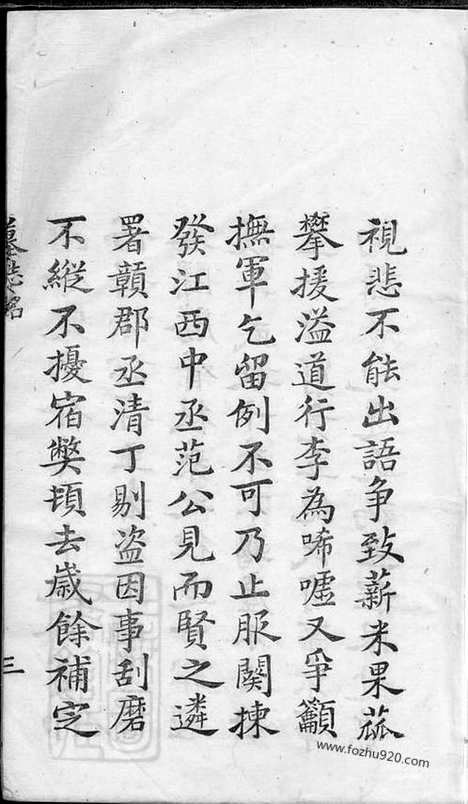 視悲不能出語争致薪米果蓏
攀援溢道行李為唏嘘又爭籲
撫軍乞留例不可乃止服闋揀
發江西中丞范公見而賢之遴
署贛郡丞清丁剔盗因事刮磨
不縱不擾宿獘頃去歳餘補定
三
www.fozhu920.com